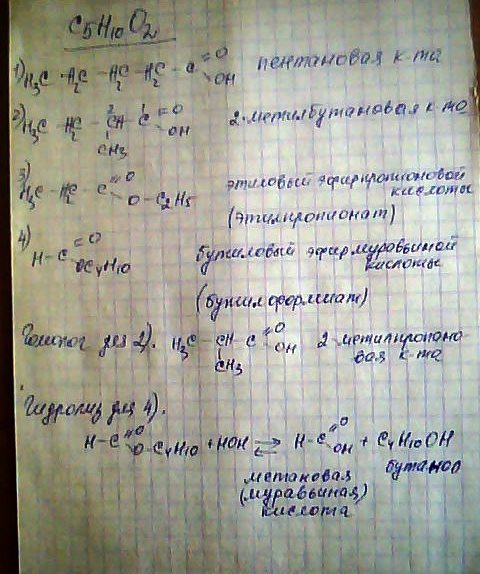 C₅H₁₀O₂
1) H₃C - H₂C - H₂C - H₂C - C =O OH пентановая к-та
2) H₃C - H₂C - CH - C =O OH 2-метилбутановая к-та
2 1
CH₃
3) H₃C - H₂C - C =O O - C₂H₅ этиловый эфир пропионовой
кислоты
(этилпропионат)
4) H - C =O OC₄H₁₀ бутиловый эфир муравьиной
кислоты
(бутилформиат)
Гомолог для 2). H₃C - CH - C =O OH 2-метилпропано-
вая к-та
CH₃
Гидролиз для 4).
H - C =O O - C₄H₁₀ + HOH ⇄ H - C =O OH + C₄H₁₀OH
метановая бутанол
(муравьиная)
кислота